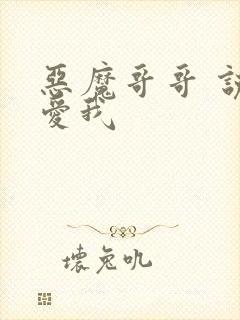 惡魔哥哥
愛我
壞兔叽